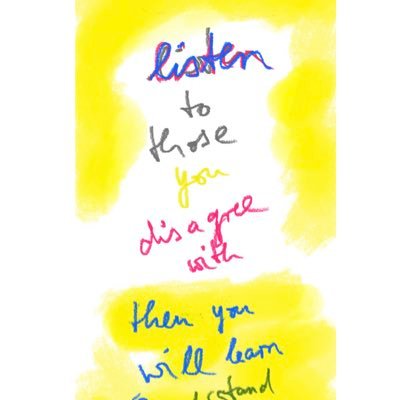 listen
to
those
you
disagree
with
then you
will learn